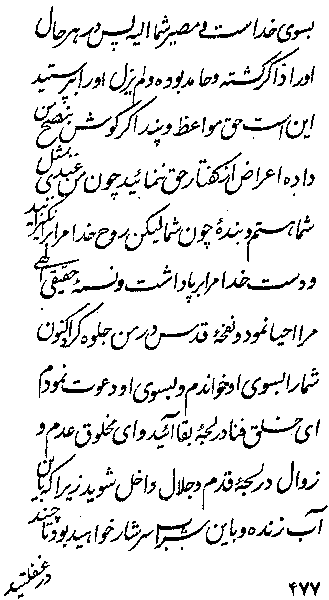 بسوی خداست و مصیر شما الیه پس در هر حال
او را ذاکر گشته و حامد بوده و لم یزل او را بپرستید
این است حق مواعظ و پند اگر گوش بنصح من
داده اعراض از گفتار حق ننمائید چون من عبدی مثل
شما هستم و بندهٔ چون شما لیکن روح خدا مرا برانگیزانید
و دست خدا مرا برپا داشت و نسمهٔ حقیقی الهی
مرا احیا نمود و نفحهٔ قدس در من جلوه کرد اکنون
شما را بسوی او خواندم و بسوی او دعوت نمودم
ای خلق فنا در لجهٔ بقا آئید و ای مخلوق عدم و
زوال در لجهٔ قدم و جلال داخل شوید زیرا که بان
آب زنده و باین شراب سرشار خواهید بود تا چند
در غفلتید
۴۷۷